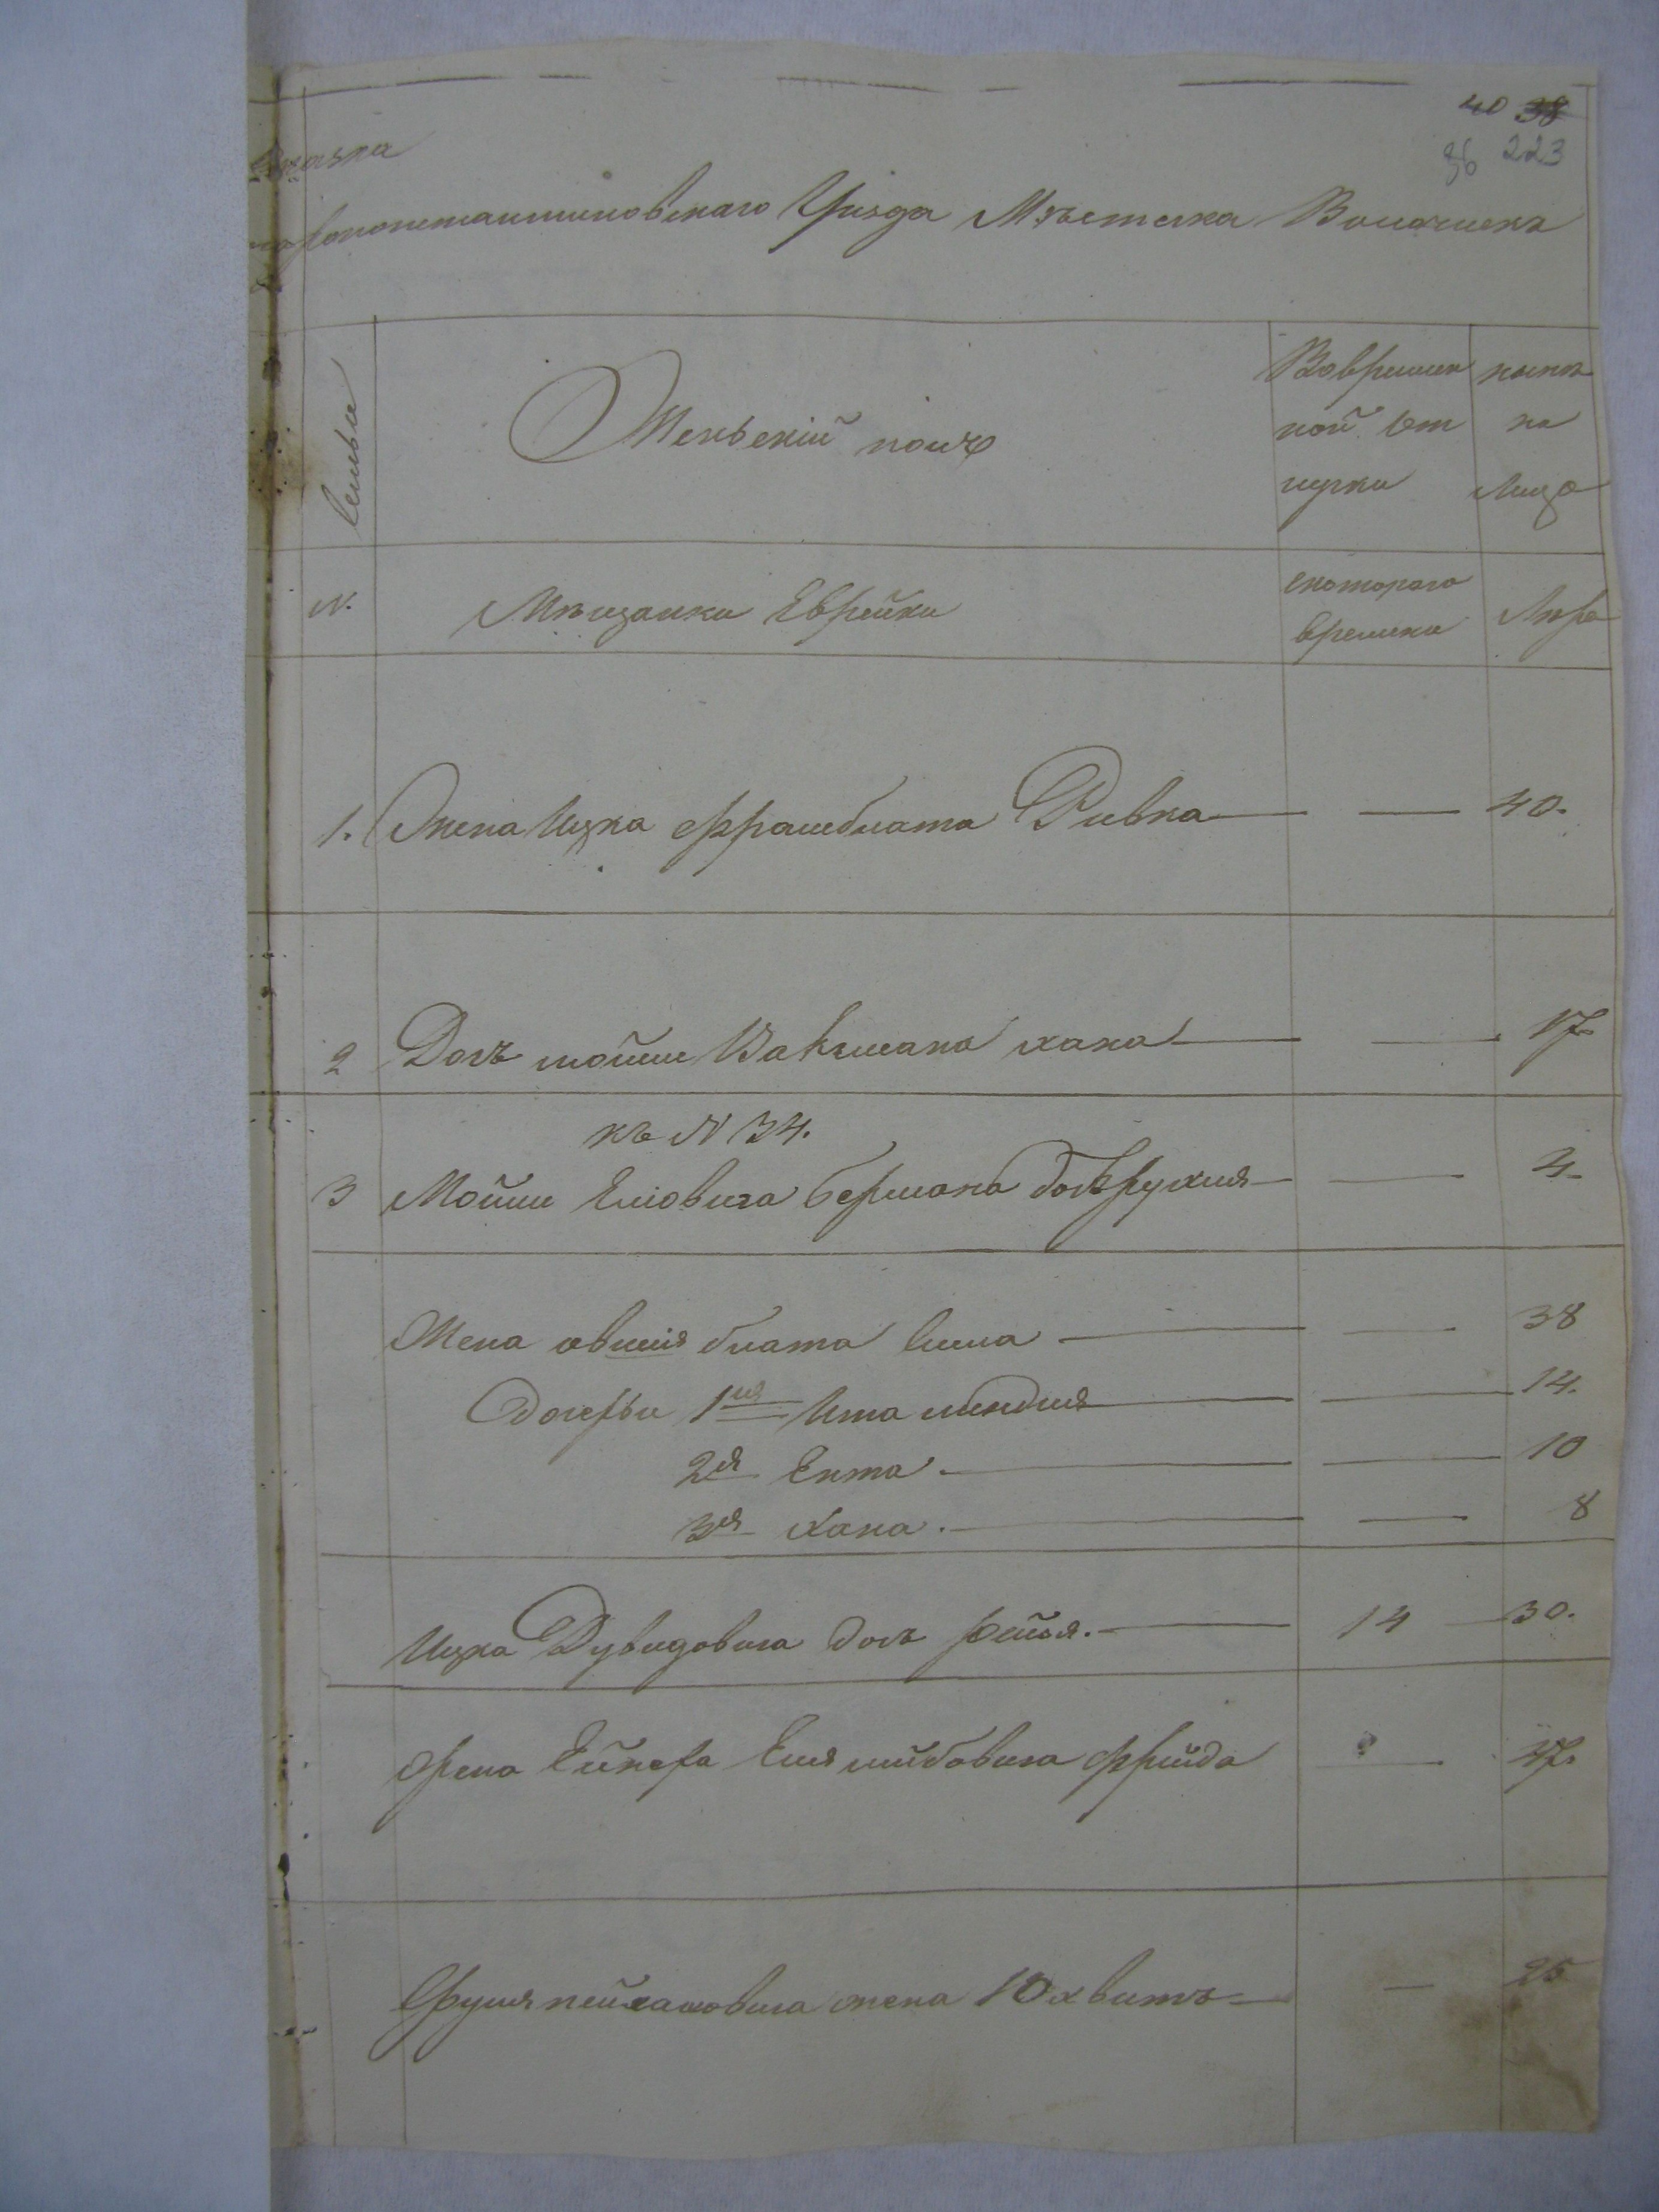 40 38
36 223
Сказка
роконстантиновскаго Уизда Мъстечка Волочискъ
Семьи
Женьскій полъ
Вовремен
ной от
лучки
нынъ
на
лицо
N.
Мъщанки Еврейки
скотораго
времени
Лѣта
1. Жена Ицка Фрашблата Ривка — — 40.
2 Дочь мошки Ваксмана хана — — 17
къ N 34.
3 Мошки Еліовича бермана дочь рухля — — 4
Жена овшія блата Сима — — 38
Дочерьи 1ая Ита миндля — — 14.
2я Ента — — 10
3я хана — — 8
Ицка Дувидовича дочь рейзя. — 14 30.
Жена Ейнера Еля лейбовича фрейда — 47.
Сруля пейсаховича жена Юхвитъ — — 25